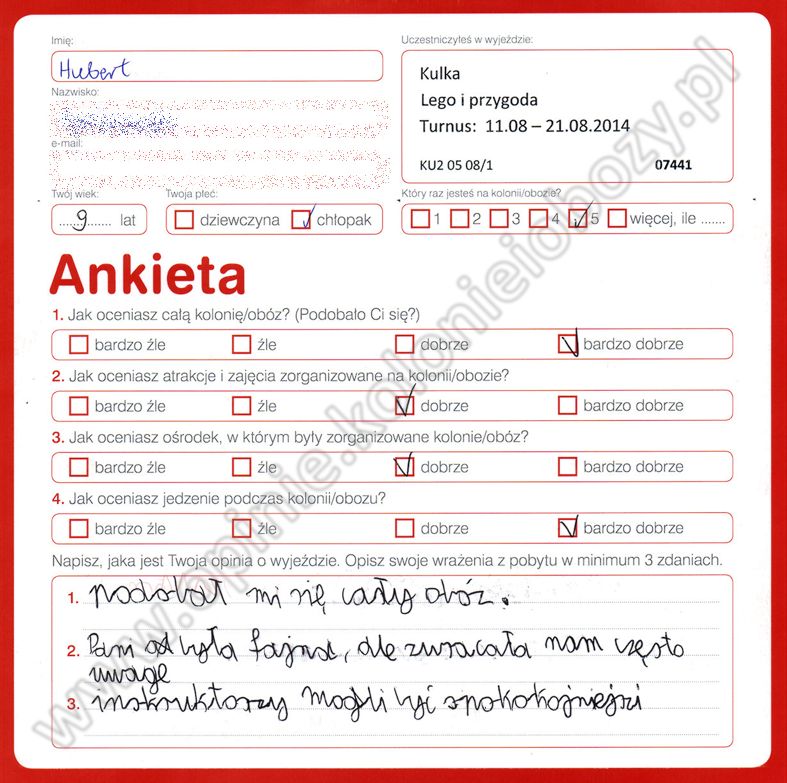 Imię:
Hubert
Nazwisko:
e-mail:
Twój wiek:
9 lat
Twoja płeć:
dziewczyna chłopak
Uczestniczyłeś w wyjeździe:
Kulka
Lego i przygoda
Turnus: 11.08 – 21.08.2014
KU2 05 08/1 07441
Który raz jesteś na kolonii/obozie?
1 2 3 4 5 więcej, ile .......
Ankieta
1. Jak oceniasz całą kolonię/obóz? (Podobało Ci się?)
bardzo źle źle dobrze bardzo dobrze
2. Jak oceniasz atrakcje i zajęcia zorganizowane na kolonii/obozie?
bardzo źle źle dobrze bardzo dobrze
3. Jak oceniasz ośrodek, w którym były zorganizowane kolonie/obóz?
bardzo źle źle dobrze bardzo dobrze
4. Jak oceniasz jedzenie podczas kolonii/obozu?
bardzo źle źle dobrze bardzo dobrze
Napisz, jaka jest Twoja opinia o wyjeździe. Opisz swoje wrażenia z pobytu w minimum 3 zdaniach.
1. podobał mi się cały obóz.
2. Pani od była fajna, ale zwracała nam często
uwagę
3. instruktorzy mogli być spokokojniejsi
www.opinie.kolonieiobozy.pl